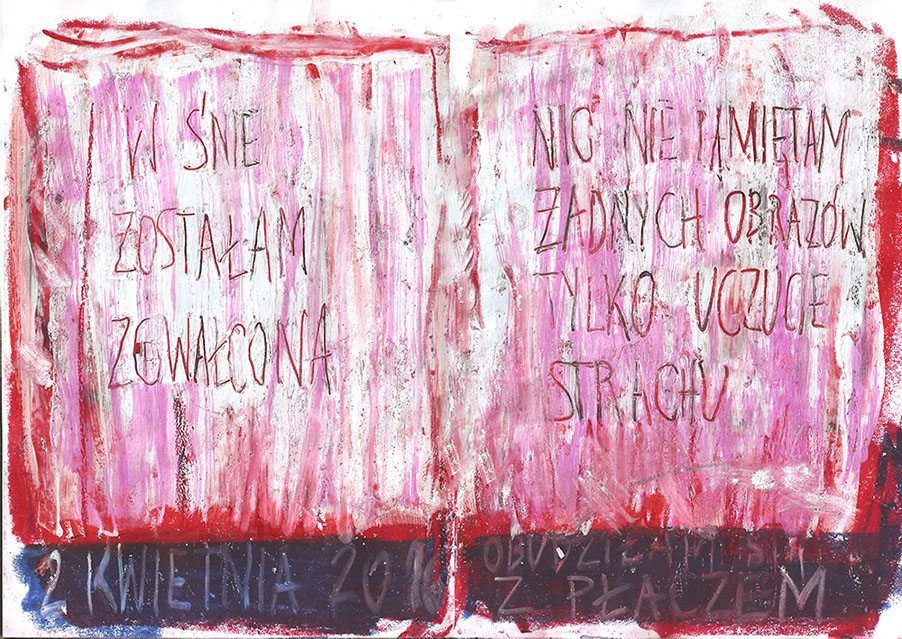 W ŚNIE
ZOSTAŁAM
ZGWAŁCONA
2 KWIETNIA 2016
NIC NIE PAMIĘTAM
ŻADNYCH OBRAZÓW
TYLKO UCZUCIE
STRACHU
OBUDZIŁAM SIĘ
Z PŁACZEM